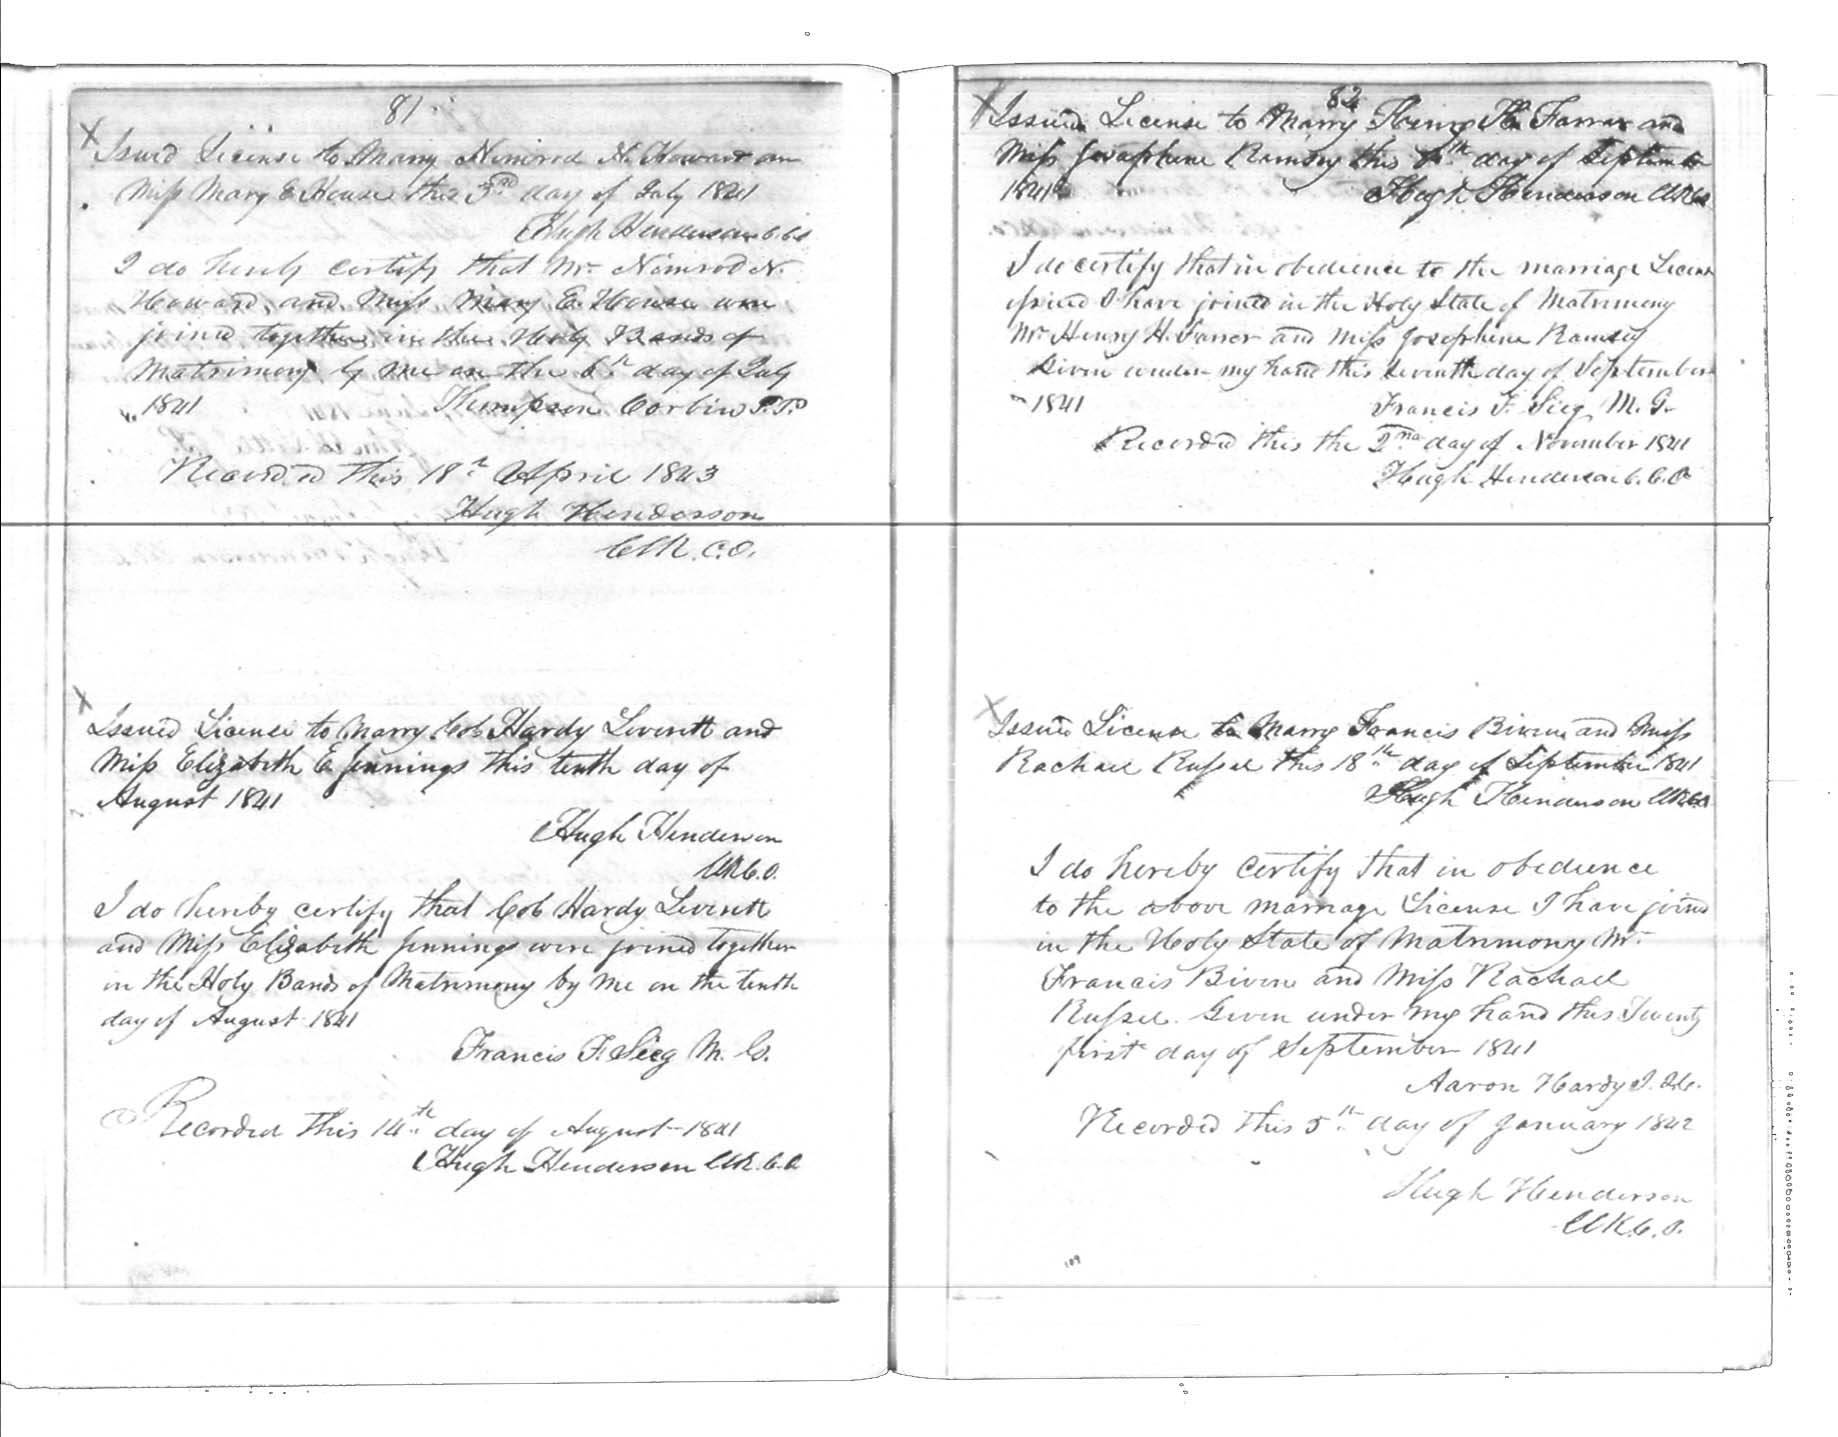 81
Issued License to Marry Nimrod N. Howard an
Miss Mary E House this 3rd day of July 1841
Hugh Henderson
I do hereby certify that Mr. Nimrod N.
Howard, and Miss Mary E. House were
joined together in the Holy Bands of
Matrimony by me on the 6th day of July
1841 Thompson Corbin
Recorded this 18th April 1843
Hugh Henderson
Clk. C.O.
Issued License to Marry Col Hardy Leverett and
Miss Elizabeth E Jennings this tenth day of
August 1841
Hugh Henderson
Clk C.O.
I do hereby certify that Col Hardy Leverett
and Miss Elizabeth Jennings were joined together
in the Holy Bands of Matrimony by me on the tenth
day of August 1841
Francis F. Sieg M. G.
Recorded this 14th day of August 1841
Hugh Henderson Clk. C.O
82
Issued License to Marry Henry H. Farrar and
Miss Josephine Ramsey this day of September
1841 Hugh Henderson Clk
I do certify that in obedience to the marriage License
I have joined in the Holy State of Matrimony
Mr. Henry H. Farrar and Miss Josephine Ramsey
Given under my hand this Seventh day of September
1841
Francis F. Sieg M. G.
Recorded this the 2nd day of November 1841
Hugh Henderson C. C. O
Issued License to Marry Francis Bivin and Miss
Rachael Russel this 18th day of September 1841
Hugh Henderson Clk
I do hereby certify that in obedience
to the above marriage License I have joined
in the Holy State of Matrimony Mr.
Francis Bivin and Miss Rachael
Russel. Given under my hand this Twenty
first day of September 1841
Aaron Hardy
Recorded this 5th day of January 1842
Hugh Henderson
Clk C. O.